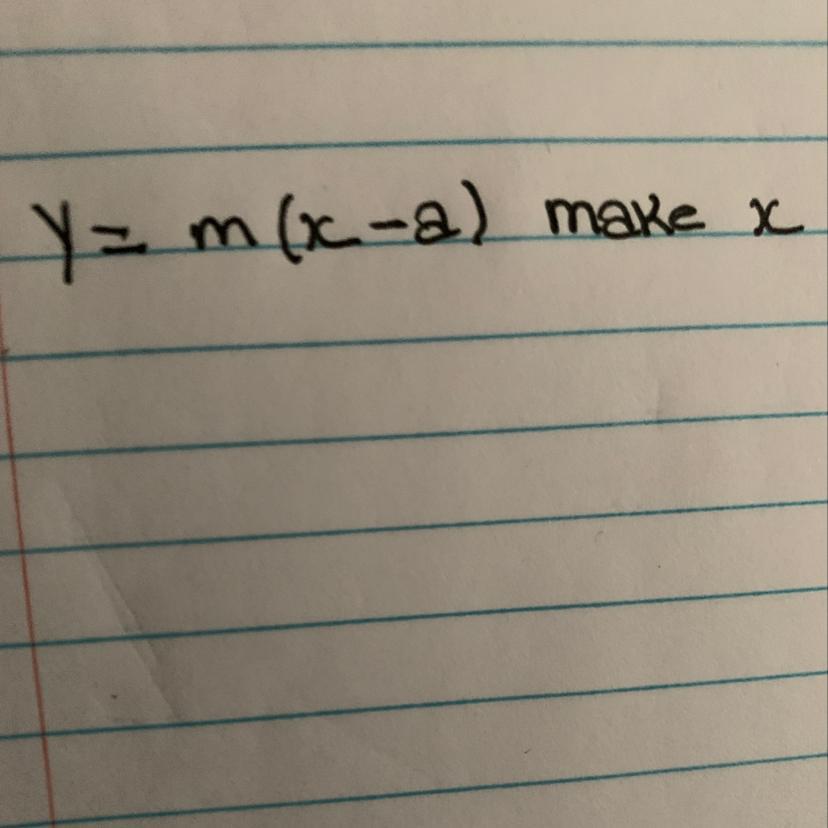 y = m(x-a) make x